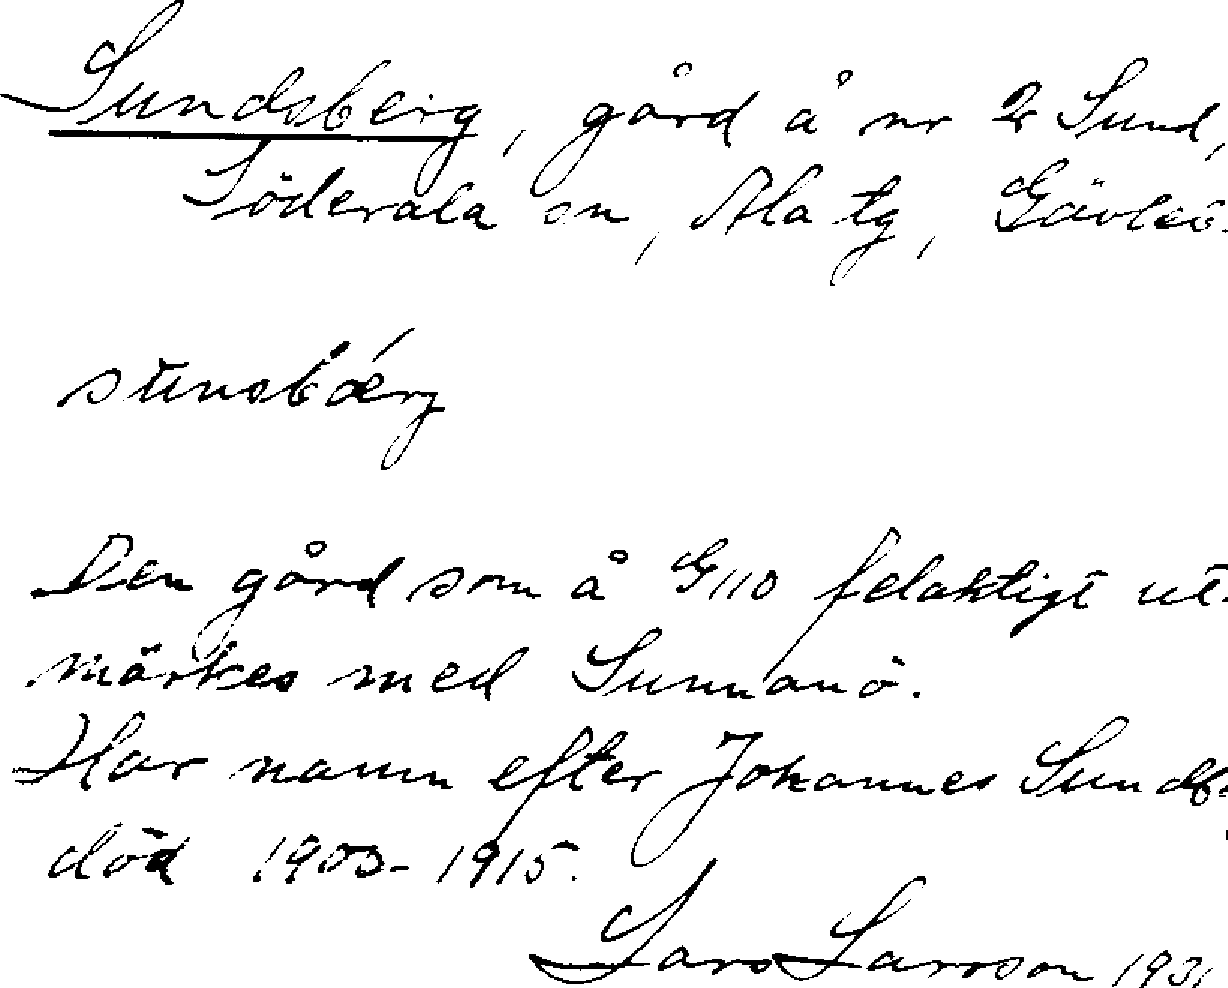 Sundsberg, gård å nr 2 Sund,
Söderala sn, Ala tg, Gävleb.
Den gård som å G110 felaktigt ut-
märkes med Sunnanö.
Har namn efter Johannes
död 1900-1915.
Lars Larsson 1931